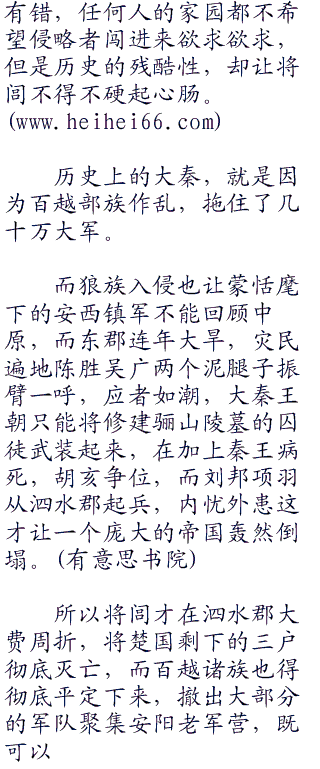 有错，任何人的家园都不希
望侵略者闯进来欲求欲求，
但是历史的残酷性，却让将
闾不得不硬起心肠。
(www.heihei66.com)
历史上的大秦，就是因
为百越部族作乱，拖住了几
十万大军。
而狼族入侵也让蒙恬麾
下的安西镇军不能回顾中
原，而东郡连年大旱，灾民
遍地陈胜吴广两个泥腿子振
臂一呼，应者如潮，大秦王
朝只能将修建骊山陵墓的囚
徒武装起来，在加上秦王病
死，胡亥争位，而刘邦项羽
从泗水郡起兵，内忧外患这
才让一个庞大的帝国轰然倒
塌。(有意思书院)
所以将闾才在泗水郡大
费周折，将楚国剩下的三户
彻底灭亡，而百越诸族也得
彻底平定下来，撤出大部分
的军队聚集安阳老军营，既
可以